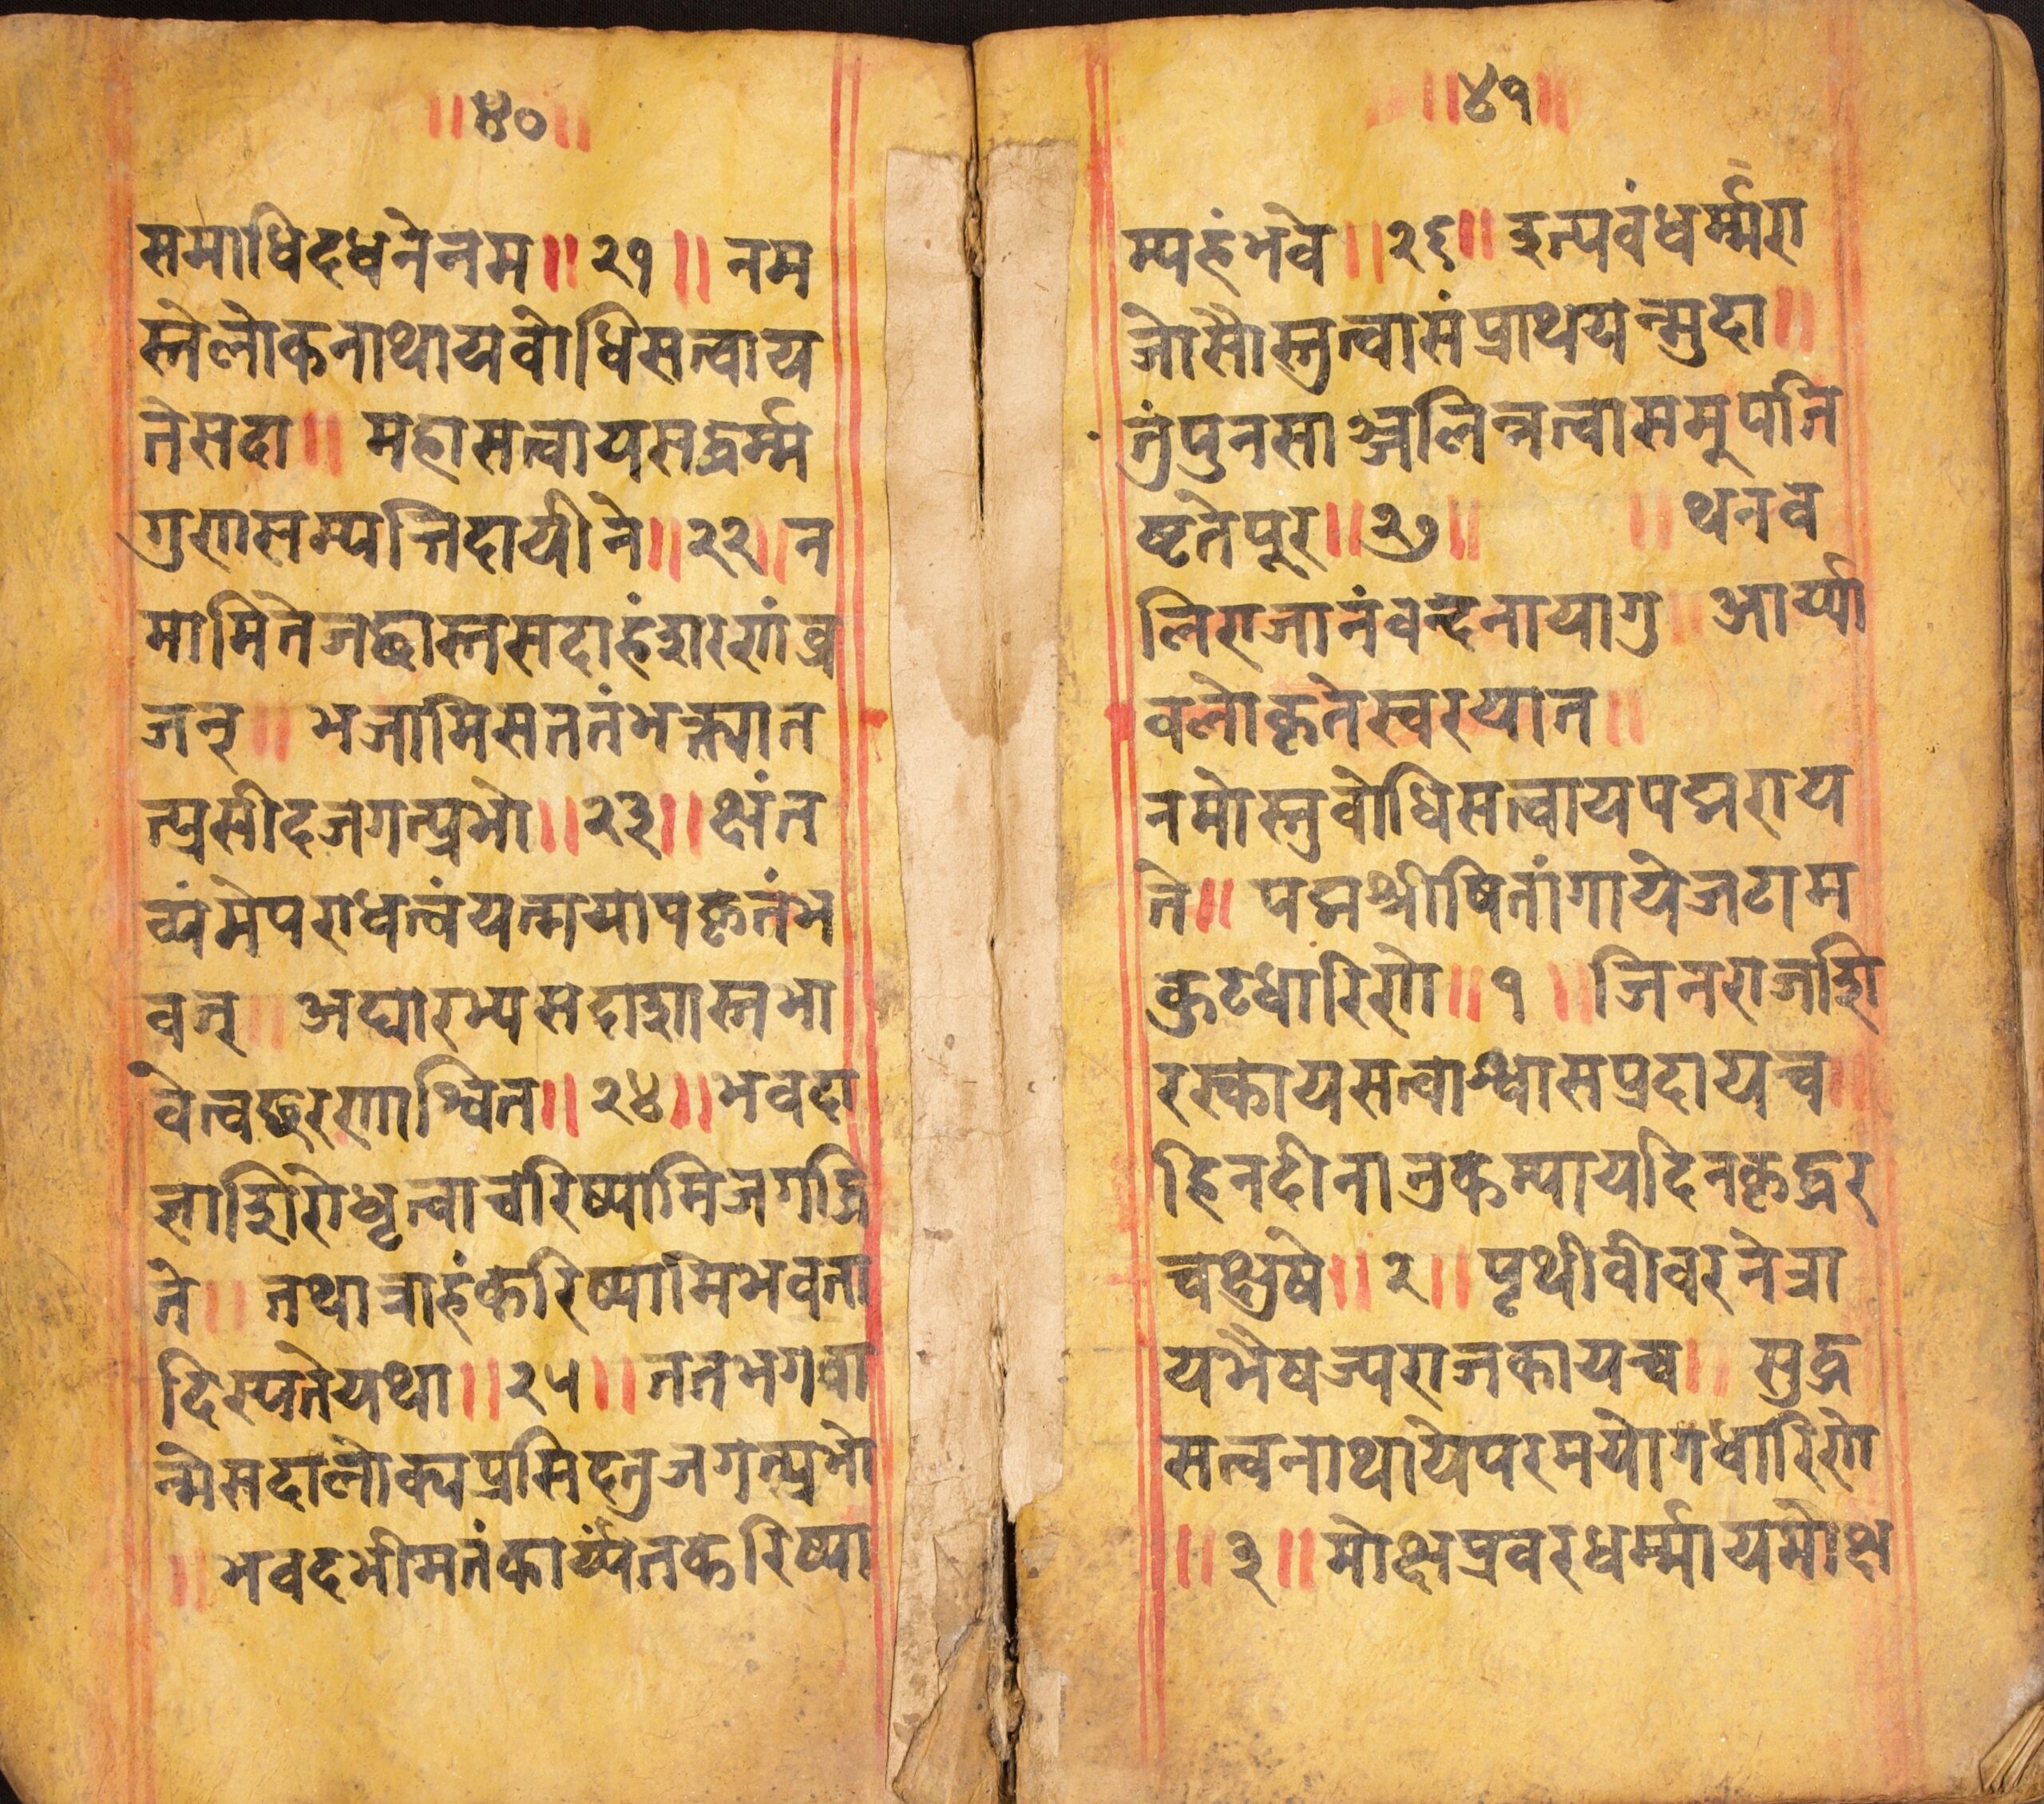 ॥४०॥
समाधिदधनेनम॥२१॥नम
स्तेलोकनाथायवोधिसत्वाय
तेसदा॥महासत्वायसद्धर्म्म
गुणसम्पत्तिदायीने॥२२॥न
मामितेजछास्तसदाहंशरणंव्र
जन्॥भजामिसततंभक्त्यात
त्प्रसीदजगत्प्रभो॥२३॥क्षंत
व्यंमेपराधत्वंयत्मयापकृतंभ
वत्॥अद्यारभ्यसदाशास्तभा
वेत्वछरणाश्चित॥२४॥भवदा
ज्ञाशिरोधृत्वाचरिष्यामिजगद्धि
ते॥तथात्राहंकरिष्यामिभवता
दिस्यतेयथा॥२५॥ततभगवा
न्मेसदालोक्यप्रसिदतुजगत्प्रभो
॥भवदभीमतंकार्य्यंतकरिष्या
॥४१॥
म्यहंभवे॥२६॥इत्यवंधर्म्मरा
जोसौस्तुत्वासंप्राथयन्मुदा॥
तुंपुनसाञ्जलिन्नत्वासमुपति
ष्टतेपूर॥२७॥ ॥थनव
लिराजानंवन्दनायागु॥आर्य्या
वलोकृतेस्वरयात॥
नमोस्तुवोधिसत्वायपद्मराय
ते॥पद्मश्रीषितांगायेजटाम
कुटधारिणे॥१॥जिनराजशि
रस्कायसत्वाश्वासप्रदायच॥
हिनदीनानुकम्पायदिनकृद्वर
चक्षुषे॥२॥पृथीवीवरनेत्रा
यभैषज्यराजकायच॥सुद्ध
सत्वनाथायेपरमयोगधारिणे
॥३॥मोक्षप्रवरधर्म्मायमोक्ष